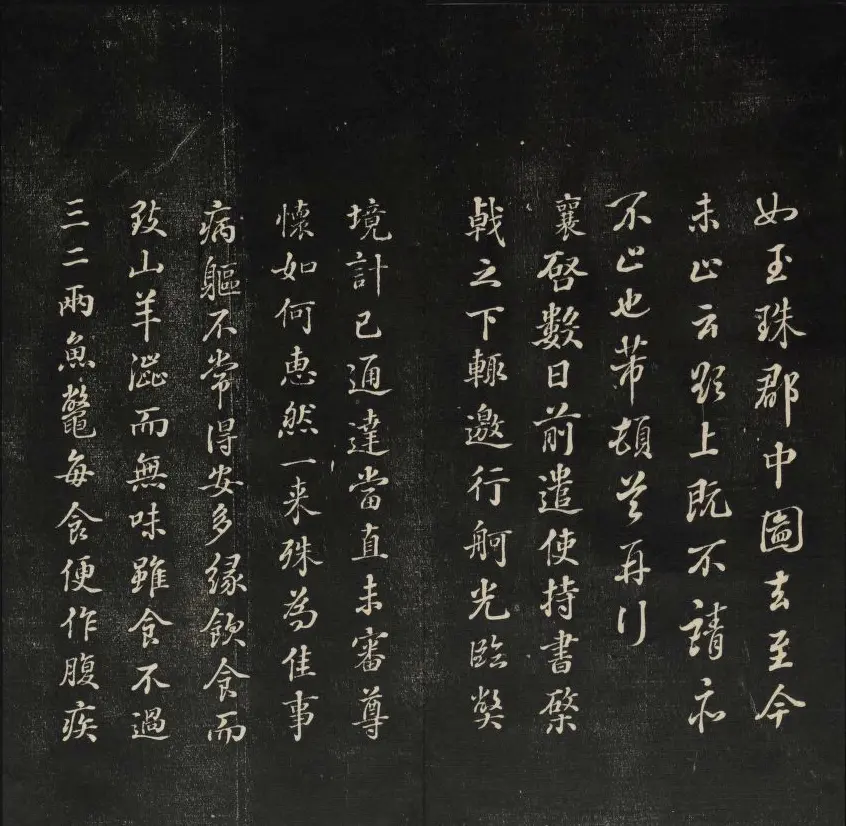 如玉珠郡中圖去至今
未止云上既不請亦
不止也芾頓首再行
襄啓數日前遣使持書棨
戟之下輒邀行舸光臨弊
境計已通達當直未審尊
懷如何惠然一来殊為佳事
病軀不常得安多緣飲食而
致山羊澁而無味雖食不過
三二兩魚鼈每食便作腹疾